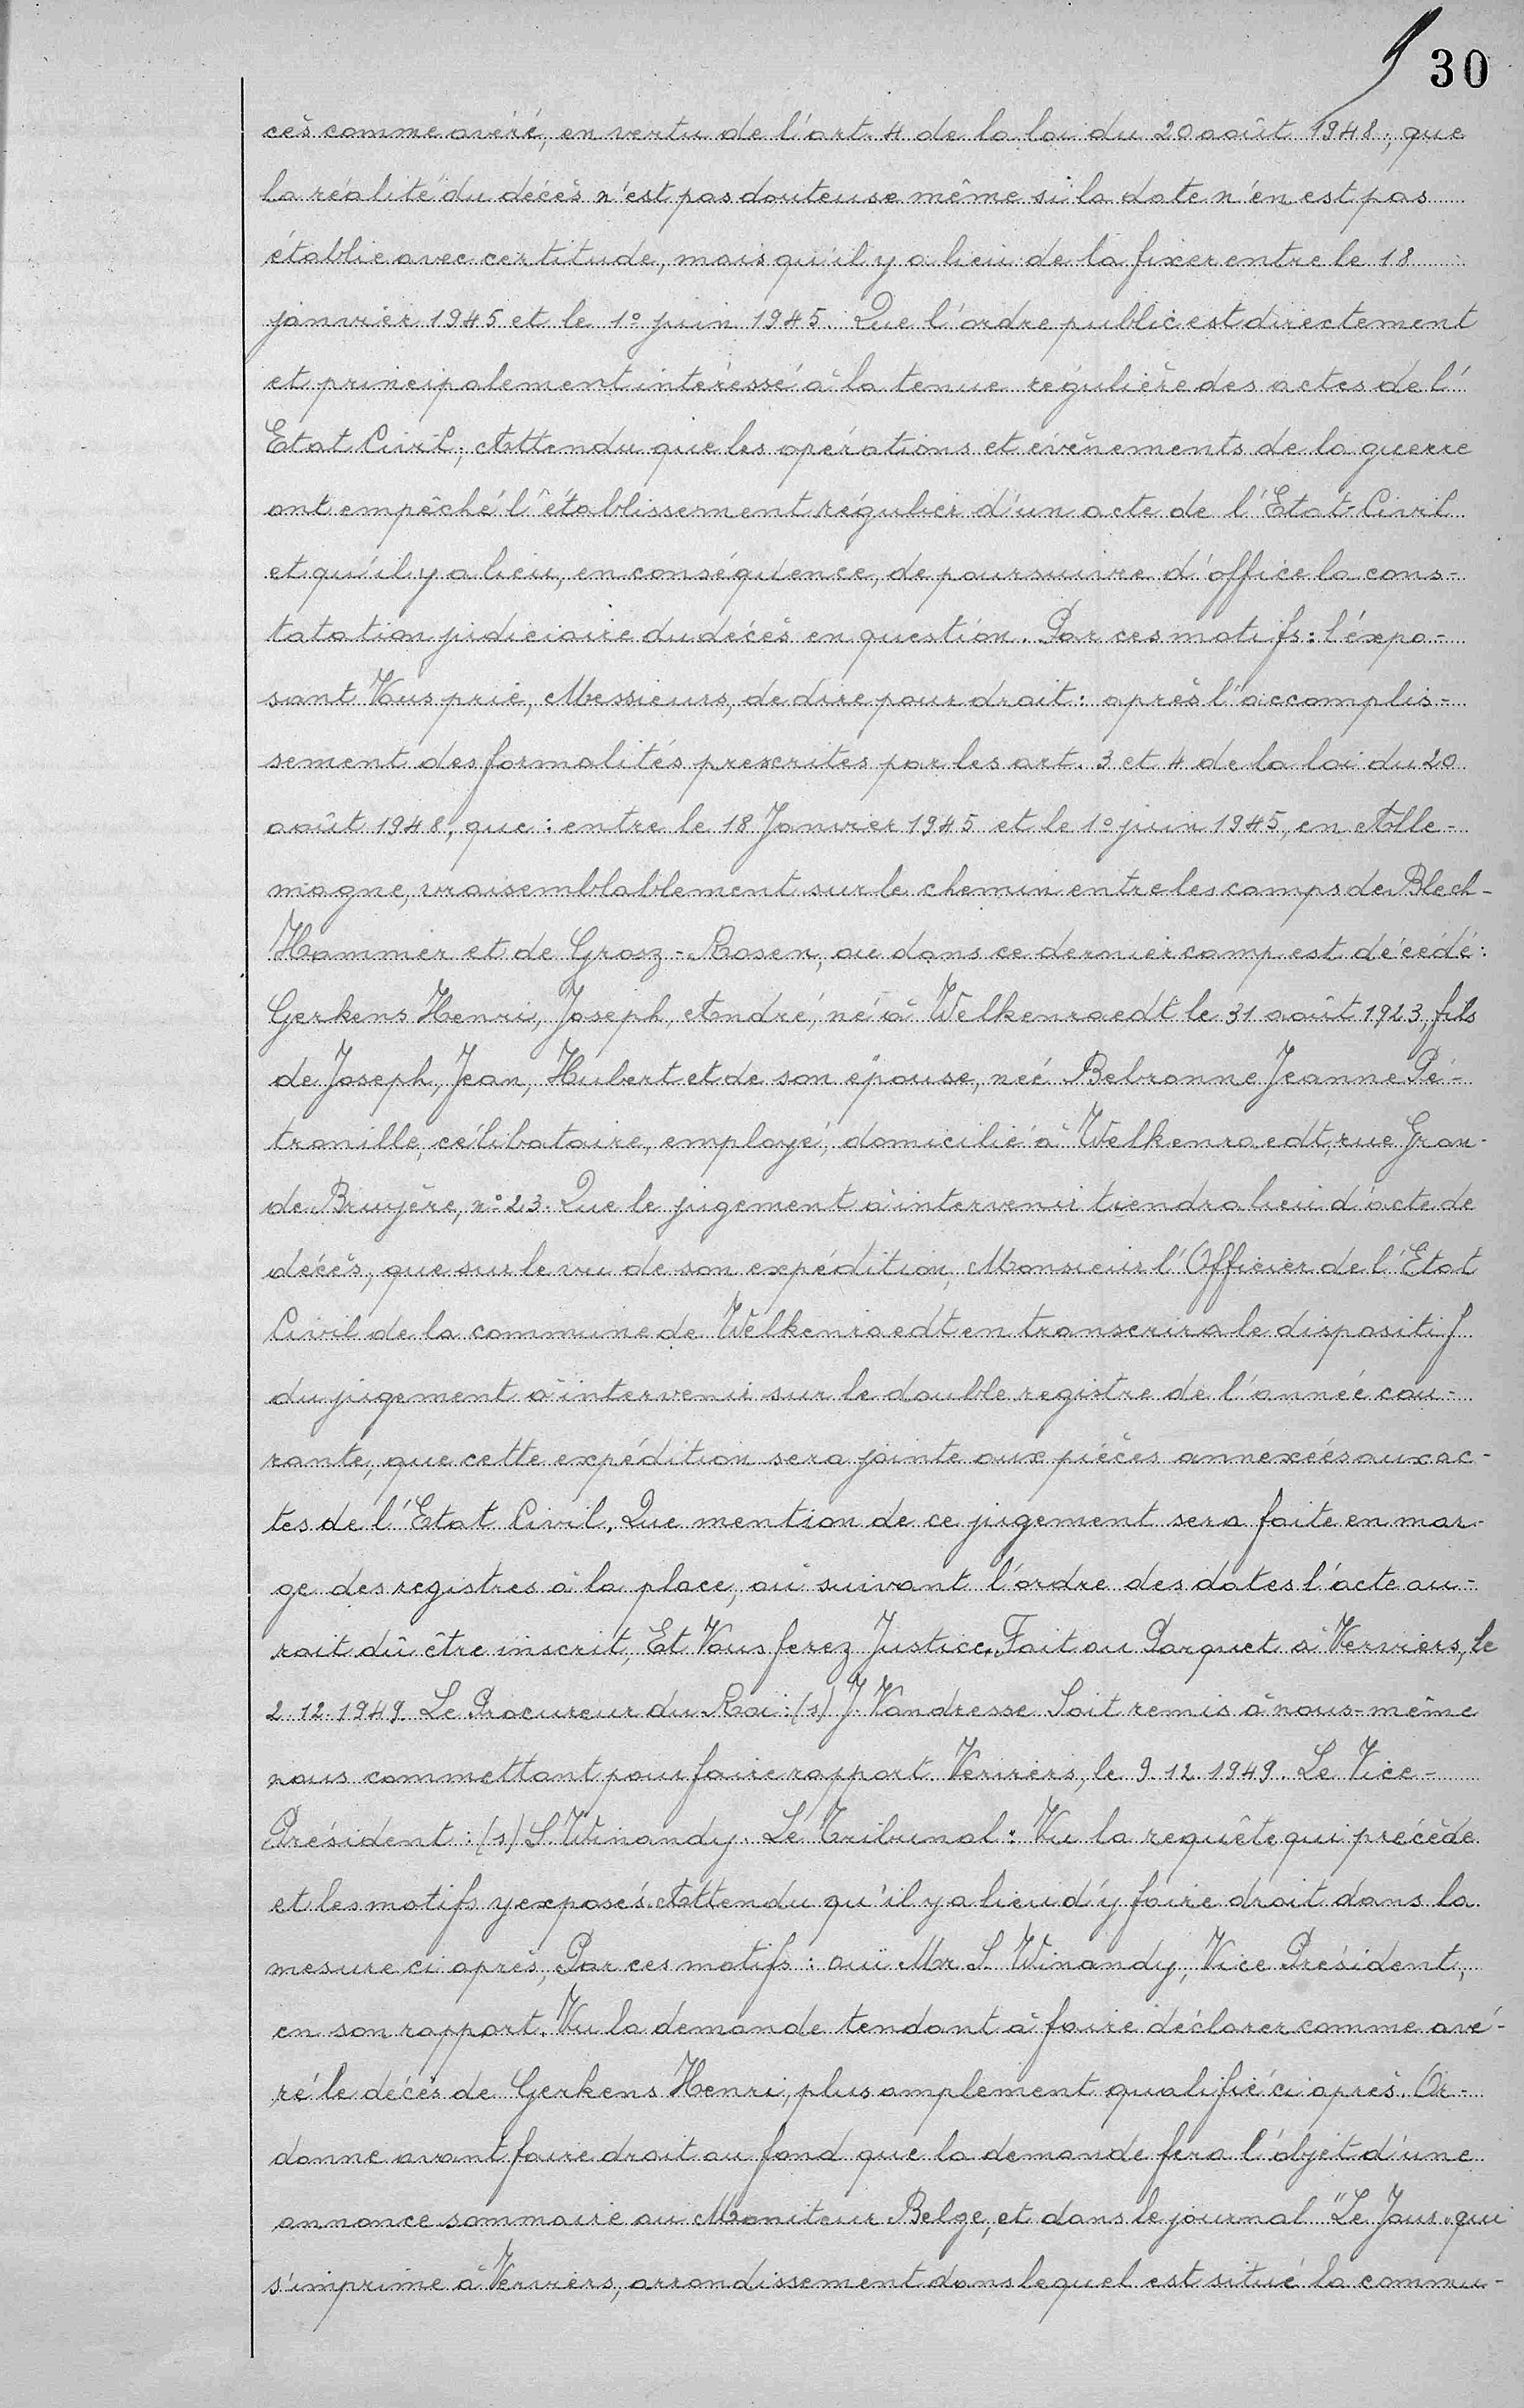 30
cès comme avéré, en vertu de l'art. 4 de la loi du 20 août 1948; que
la réalité du décès n'est pas douteuse même si la date n'en est pas
établie avec certitude, mais qu'il y a lieu de la fixer entre le 18
janvier 1945 et le 1° juin 1945. Que l'ordre public est directement
et principalement intéressé à la tenue régulière des actes de l'
Etat Civil; Attendu que les opérations et évènements de la guerre
ont empêché l'établissement régulier d'un acte de l'Etat-Civil
et qu'il y a lieu, en conséquence, de poursuivre d'office la cons-
tatation judiciaire du décès en question. Par ces motifs: l'expo-
sant Vous prie, Messieurs, de dire pour droit: après l'accomplis-
sement des formalités prescrites par les art. 3 et 4 de la loi du 20
août 1948, que: entre le 18 Janvier 1945 et le 1° juin 1945, en Alle-
magne, vraisemblablement sur le chemin entre les camps de Blech-
Hammer et de Grosz-Rosen, ou dans ce dernier camp est décédé:
Gerkens Henri, Joseph, André, né à Welkenraedt le 31 août 1923, fils
de Joseph, Jean, Hubert et de son épouse, née Belronne Jeanne Pé-
tronille, célibataire, employé, domicilié à Welkenraedt, rue Gran-
de Bruyère, n° 23. Que le jugement à intervenir tiendra lieu d'acte de
décès, que sur le vu de son expédition, Monsieur l'Officier de l'Etat
Civil de la commune de Welkenraedt en transcrira le dispositif
du jugement à intervenir sur le double registre de l'année cou-
rante, que cette expédition sera jointe aux pièces annexées aux ac-
tes de l'Etat Civil. Que mention de ce jugement sera faite en mar-
ge des registres à la place, où suivant l'ordre des dates l'acte au-
rait dû être inscrit, Et Vous ferez Justice. Fait au Parquet à Verviers, le
2.12.1949. Le Procureur du Roi: (s) J. Vandresse Soit remis à nous-même
nous commettant pour faire rapport. Verviers, le 9.12.1949. Le Vice-
Président: (s) S. Winandy. Le Tribunal: Vu la requête qui précède
et les motifs y exposés. Attendu qu'il y a lieu d'y faire droit dans la
mesure ci après, Par ces motifs: ouï Mr S. Winandy, Vice Président,
en son rapport. Vu la demande tendant à faire déclarer comme avé-
ré le décès de Gerkens Henri, plus amplement qualifié ci après. Or-
donne avant faire droit au fond que la demande fera l'objet d'une
annonce sommaire au Moniteur Belge, et dans le journal "Le Jour" qui
s'imprime à Verviers, arrondissement dans lequel est situé la commu-